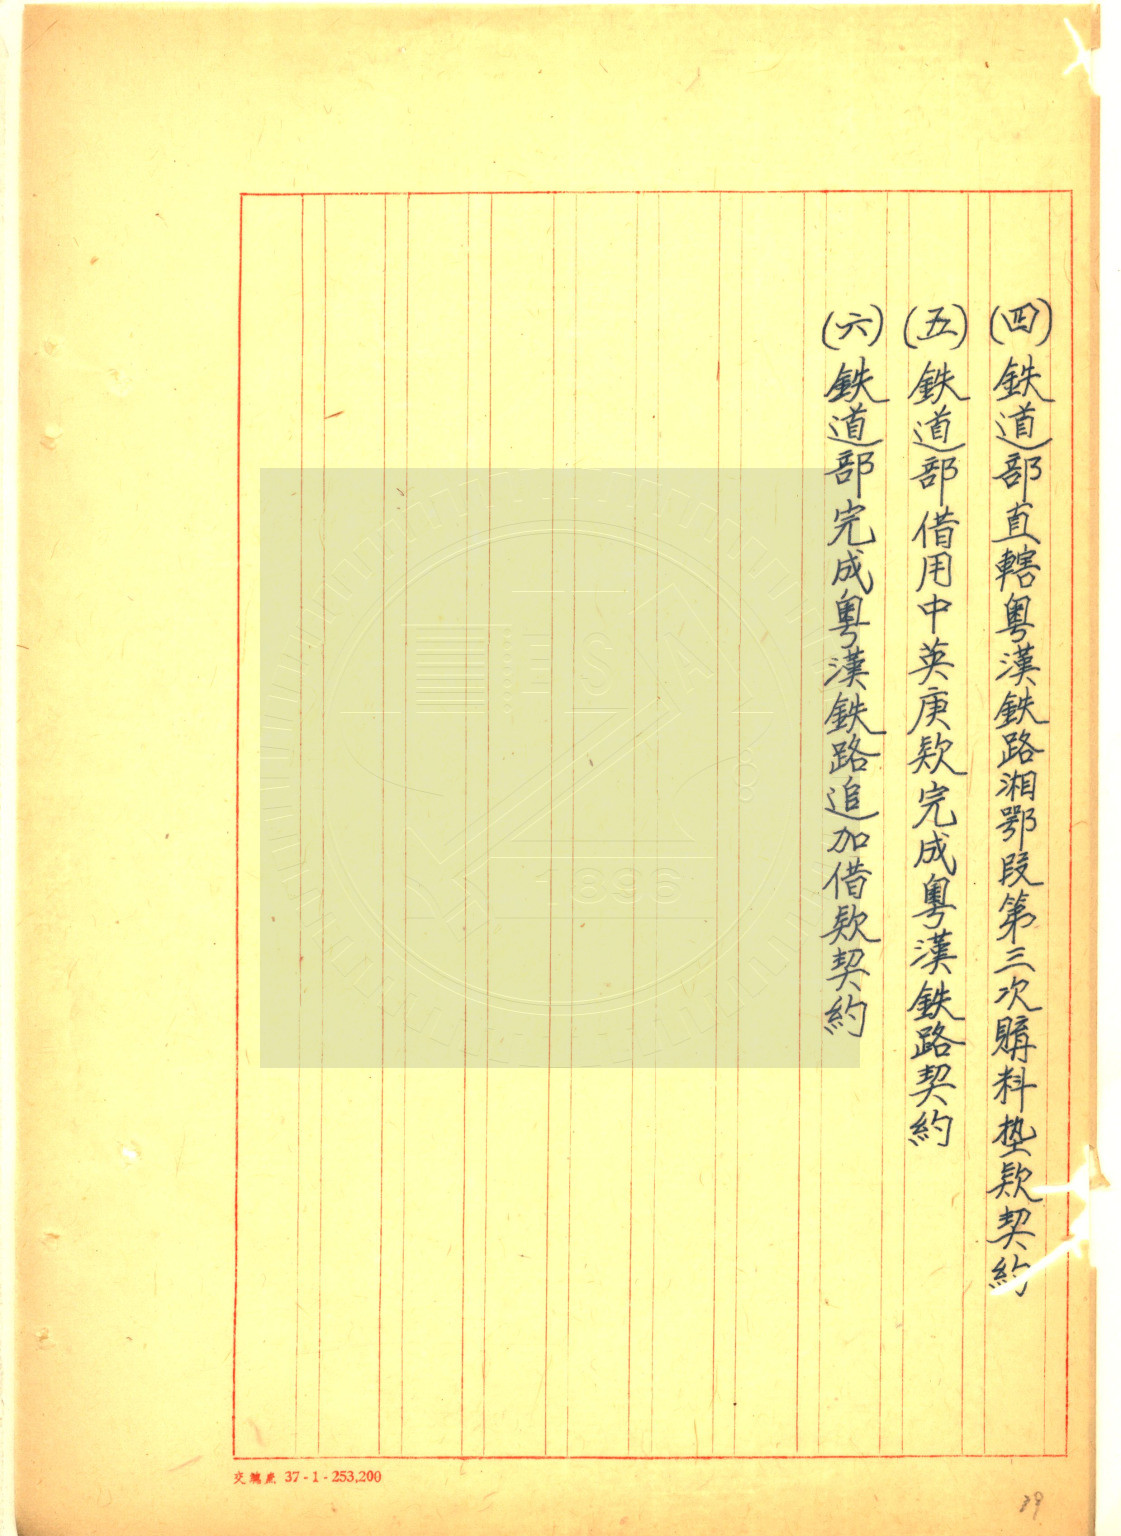 (四)鉄道部直轄粵漢鉄路湘鄂段第三次購料垫欵契約
(五)鉄道部借用中英庚欵完成粵漢鉄路契約
(六)鉄道部完成粵漢鉄路追加借欵契約
37-1-253,200
39
1896